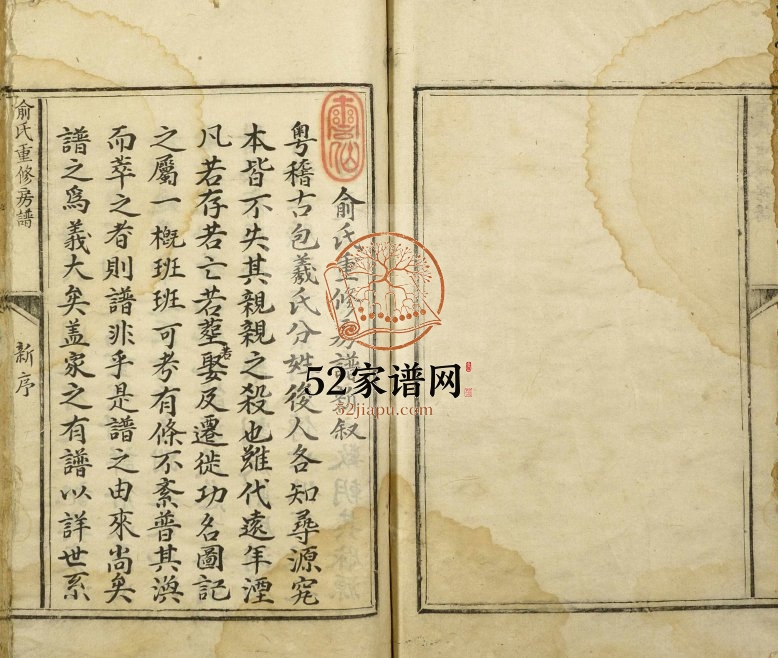 俞氏重修房譜新叙
粵稽古包羲氏分姓後人各知尋源究
本皆不失其親親之殺也雖代遠年湮
凡若存若亡若塟若娶及遷徙功名圖記
之屬一概班班可考有條不紊普其渙
而萃之者則譜非乎是譜之由來尚矣
譜之爲義大矣盖家之有譜以詳世系
俞氏重修房譜
新序
52家谱网
52jiapu.com